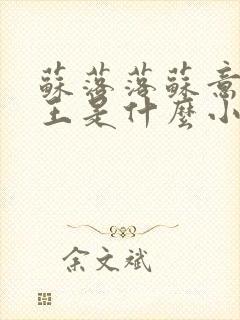 蘇落落蘇意
主是什麼小
余文斌